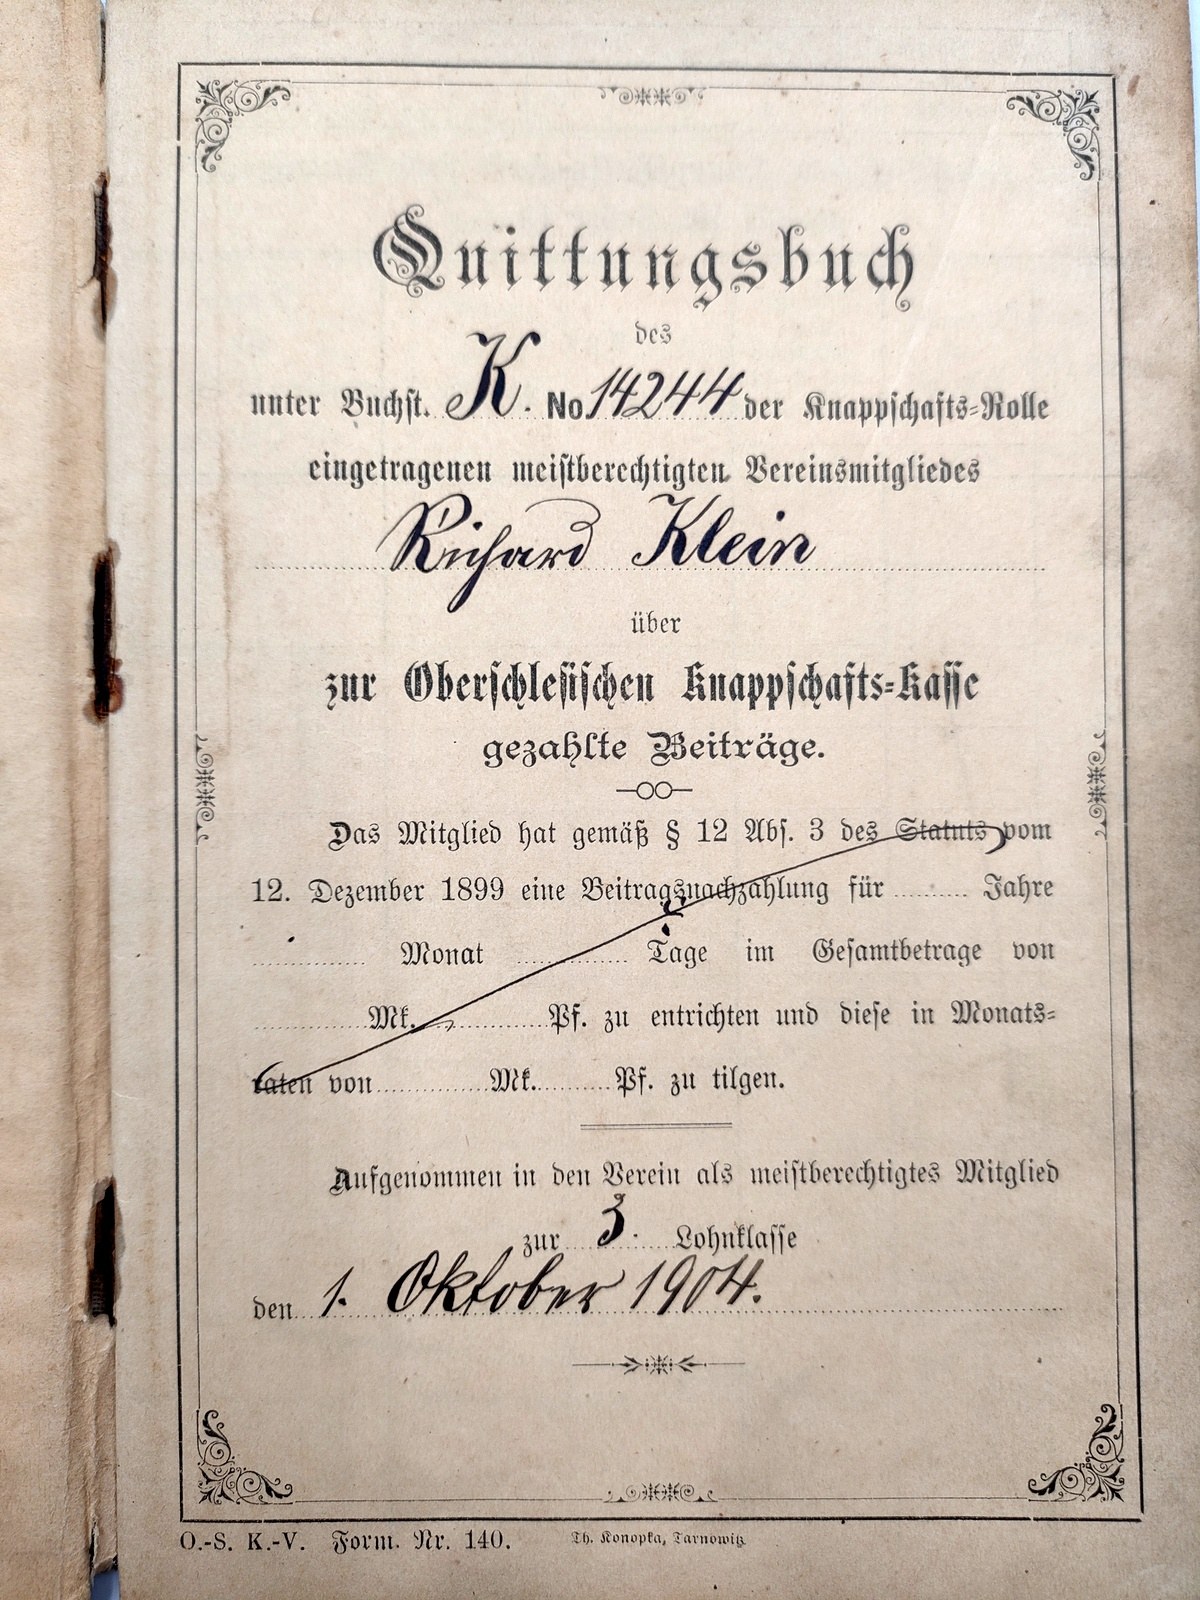 Quittungsbuch
des
unter Buchst. K. No 14244 der Knappschafts-Rolle
eingetragenen meistberechtigten Vereinsmitgliedes
Richard Klein
über
zur Oberschlesischen Knappschafts-Kasse
gezahlte Beiträge.
Das Mitglied hat gemäß § 12 Abs. 3 des Statuts vom
12. Dezember 1899 eine Beitragsnachzahlung für ......... Jahre
............. Monat ............. Tage im Gesamtbetrage von
............. Mk. ............. Pf. zu entrichten und diese in Monats-
raten von ............. Mk. ......... Pf. zu tilgen.
Aufgenommen in den Verein als meistberechtigtes Mitglied
zur 3. Lohnklasse
den 1. Oktober 1904.
O.-S. K.-V. Form. Nr. 140. Th. Konopka, Tarnowitz